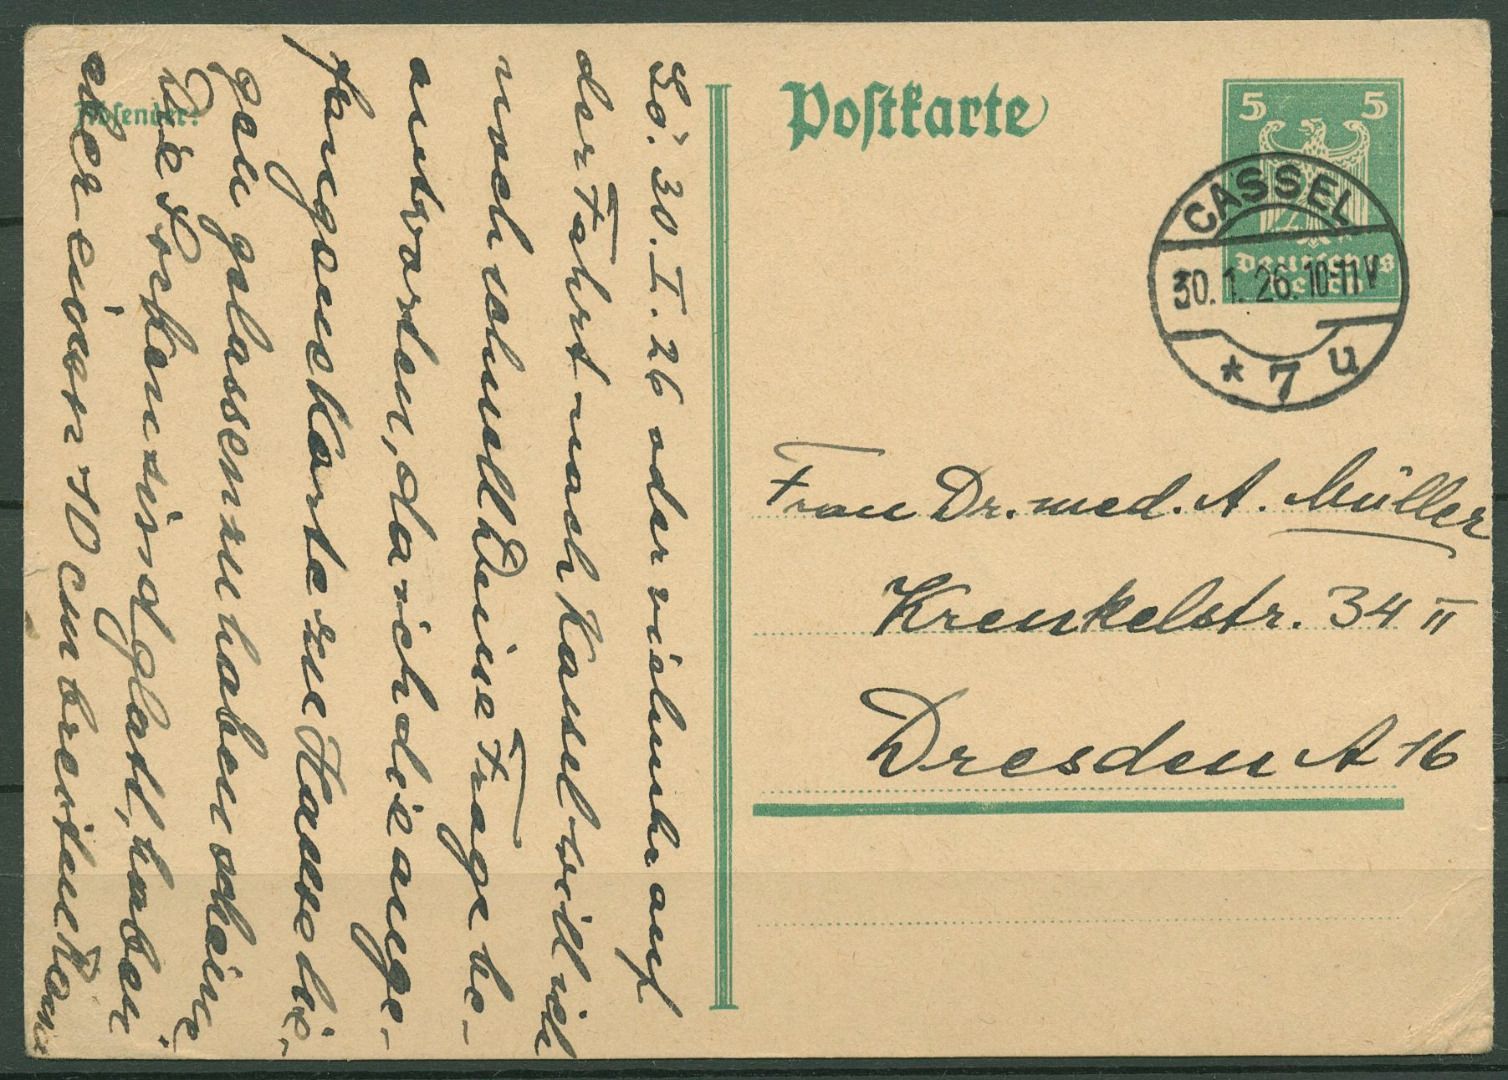 Postkarte
5 5
Deutsches
Reich
CASSEL
30.1.26.10-11V
* 7 u
Absender:
Frau Dr. med. A. Müller
Krenkelstr. 34 II
Dresden A 16
30. I. 26 oder vielmehr auf
der Fahrt nach Kassel will ich
noch schnell Deine Frage be-
antworten, da ich die ange-
fangene Karte zu Hause lie-
gen gelassen zu haben scheine.
Die sind glatt, haben
aber einen 10 cm breiten